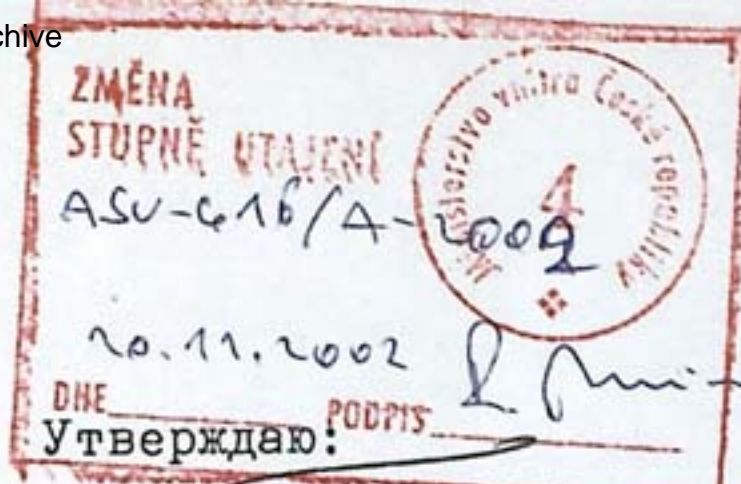 chive
ZMĚNA
STUPNĚ UTAJENÍ
Ministerstvo vnitra České republiky
4
20.11.2002
DNE PODPIS
Утверждаю: